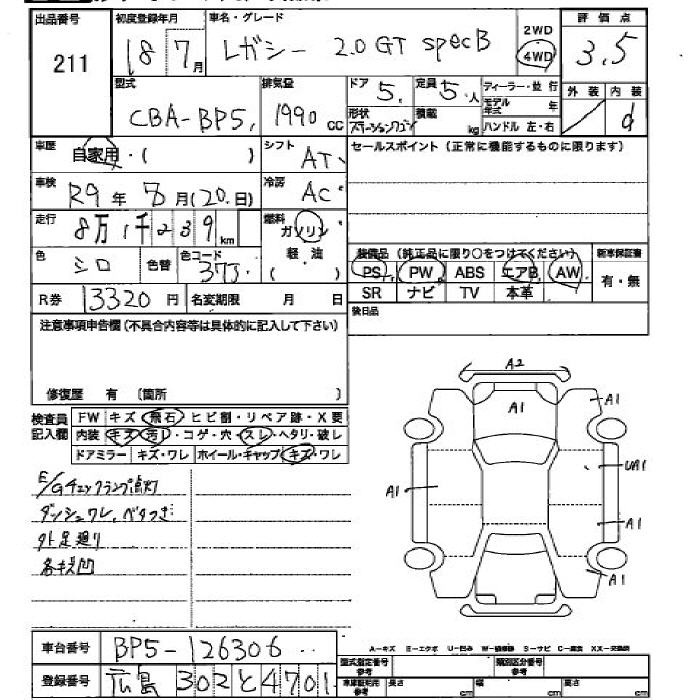 出品番号 初度登録年月 車名・グレード 2WD 4WD 評価点
211 18 7月 レガシー 2.0GT specB 3.5
型式 排気量 ドア 定員 ディーラー・並行 外装 内装
CBA-BP5 1990cc 5 5人 モデル年式 年 d
形状 ステーションワゴン 積載 kg ハンドル 左・右
車歴 自家用・( ) シフト AT セールスポイント(正常に機能するものに限ります)
車検 R9年 8月(20日) 冷房 AC
走行 8万1千239km 燃料 ガソリン 軽・油 ( )
色 シロ 色替 色コード 37J
装備品(純正品に限り○をつけてください) 新車保証書
PS PW ABS エアB AW 有・無
SR ナビ TV 本革
R券 13320円 名変期限 月 日 後日品
注意事項申告欄(不具合内容等は具体的に記入して下さい)
修復歴 有 〔箇所 〕
検査員記入欄 FW キズ・飛石・ヒビ割・リペア跡・X要
内装 キズ・汚レ・コゲ・穴・スレ・ヘタリ・破レ
ドアミラー キズ・ワレ ホイール・キャップ キズ・ワレ
E/Gチェックランプ点灯
ダッシュワレ、ベタつき
外足廻り
各キズ凹
A2
A1 A1
A1 UA1
A1
A1
A-キズ E-エクボ U-凹み W-補修跡 S-サビ C-腐食 XX-交換済
車台番号 BP5-126306
登録番号 広島 302 と 4701
型式指定番号 参考 類別区分番号 参考
車庫証明用 参考 長さ cm 幅 cm 高さ cm